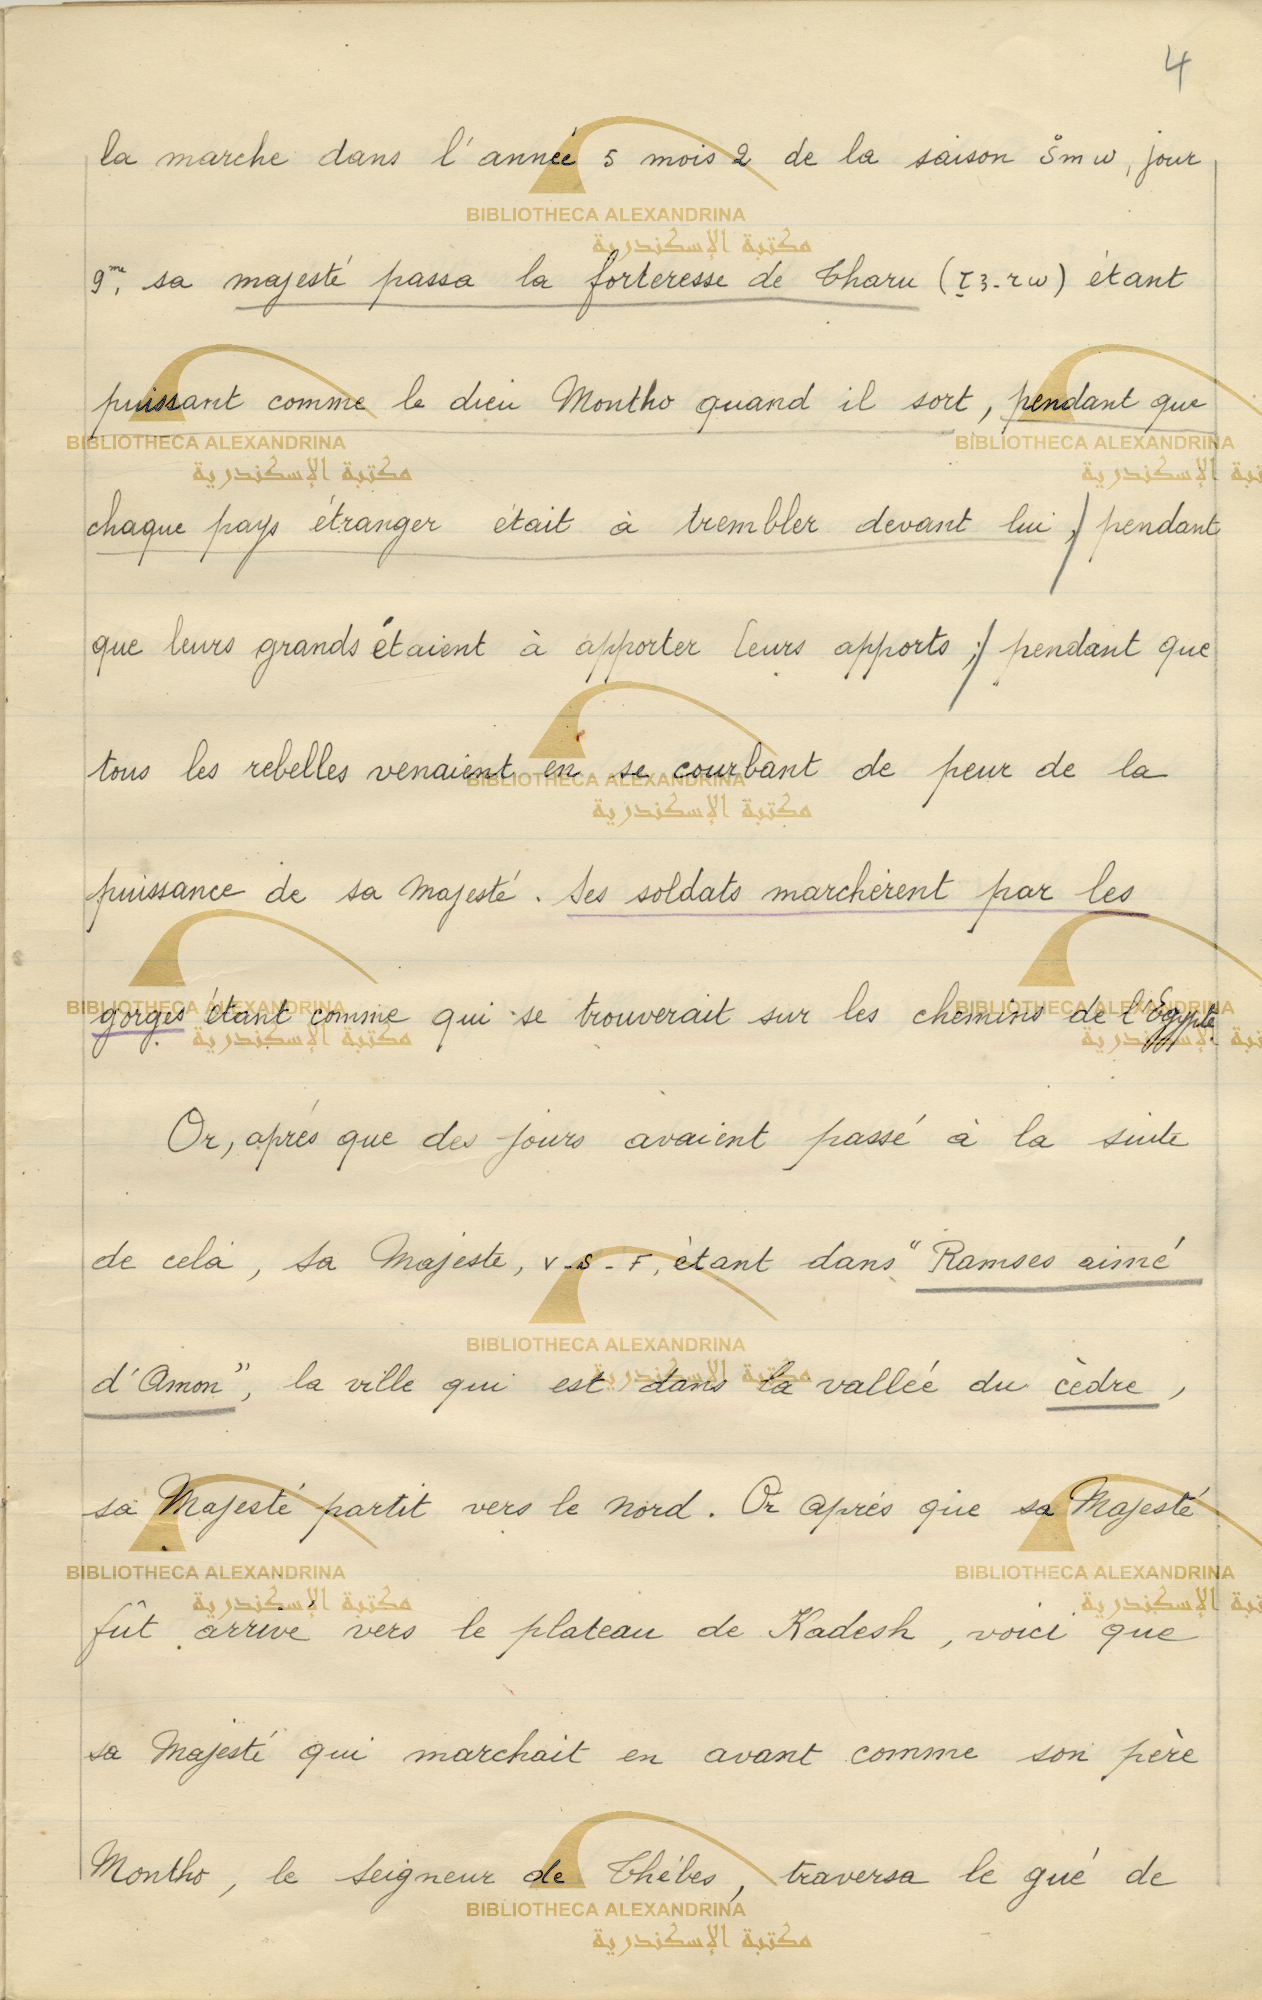 4
la marche dans l'année 5 mois 2 de la saison šmw, jour
9me, sa majesté passa la forteresse de Tharu (ṯ3-rw) étant
puissant comme le dieu Montho quand il sort, pendant que
chaque pays étranger était à trembler devant lui,/ pendant
que leurs grands étaient à apporter leurs apports ;/ pendant que
tous les rebelles venaient en se courbant de peur de la
puissance de sa Majesté. Ses soldats marchèrent par les
gorges étant comme qui se trouverait sur les chemins de l'Egypte.
Or, après que des jours avaient passé à la suite
de cela, Sa Majeste, V-S-F, étant dans "Ramses aimé
d'Amon", la ville qui est dans la valléé du cèdre,
sa Majesté partit vers le nord. Or après que sa Majesté
fût arrivé vers le plateau de Kadesh, voici que
sa Majesté qui marchait en avant comme son père
Montho, le Seigneur de Thébes, traversa le gué de
BIBLIOTHECA ALEXANDRINA
مكتبة الإسكندرية